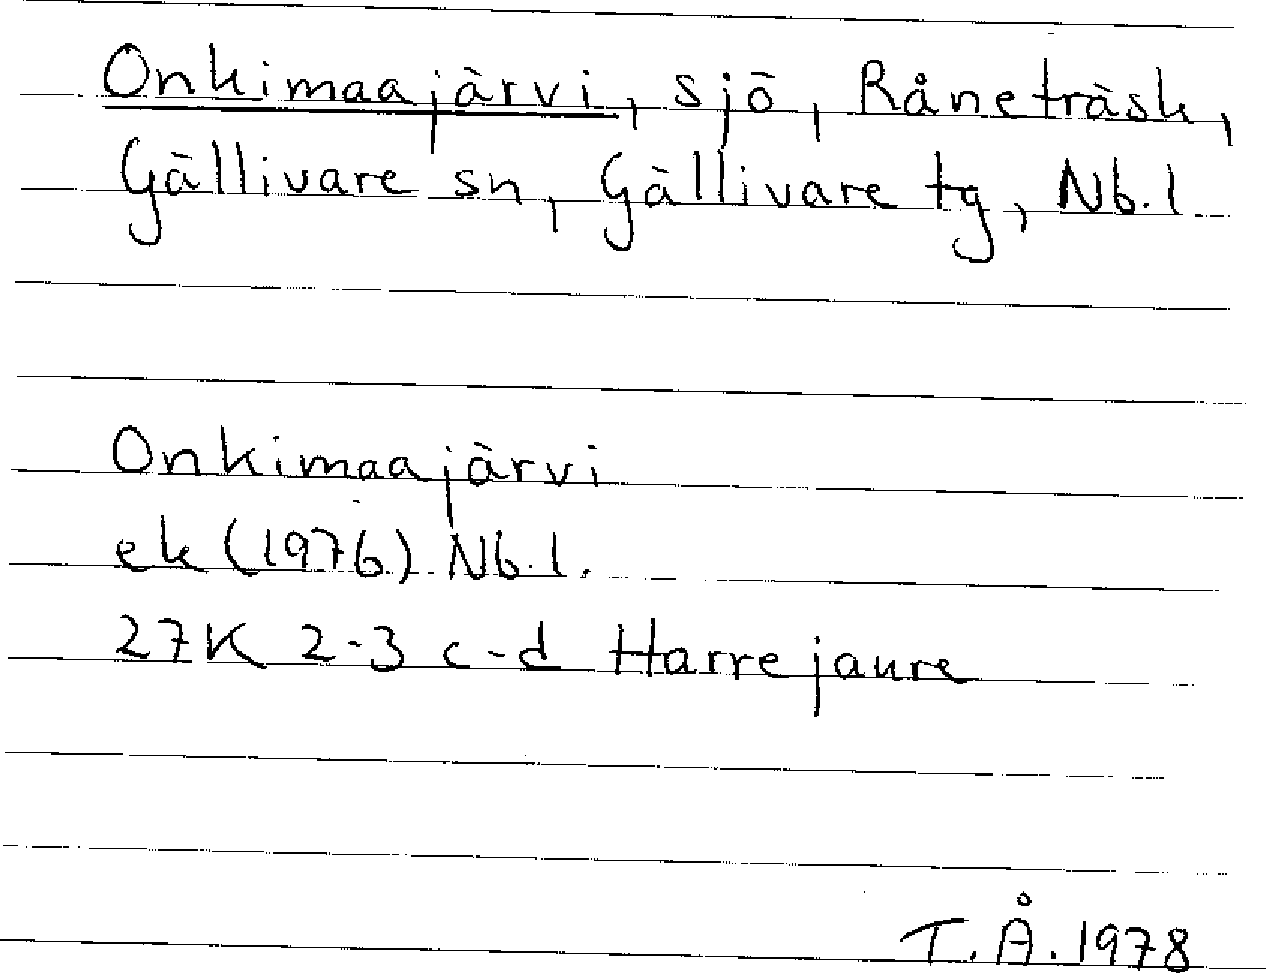 Onkimaajärvi, sjö, Råneträsk,
Gällivare sn, Gällivare tg, Nb.l
Onkimaajärvi
ek (1976) Nb.l.
27K 2-3 c-d Harrejaure
T.Å. 1978